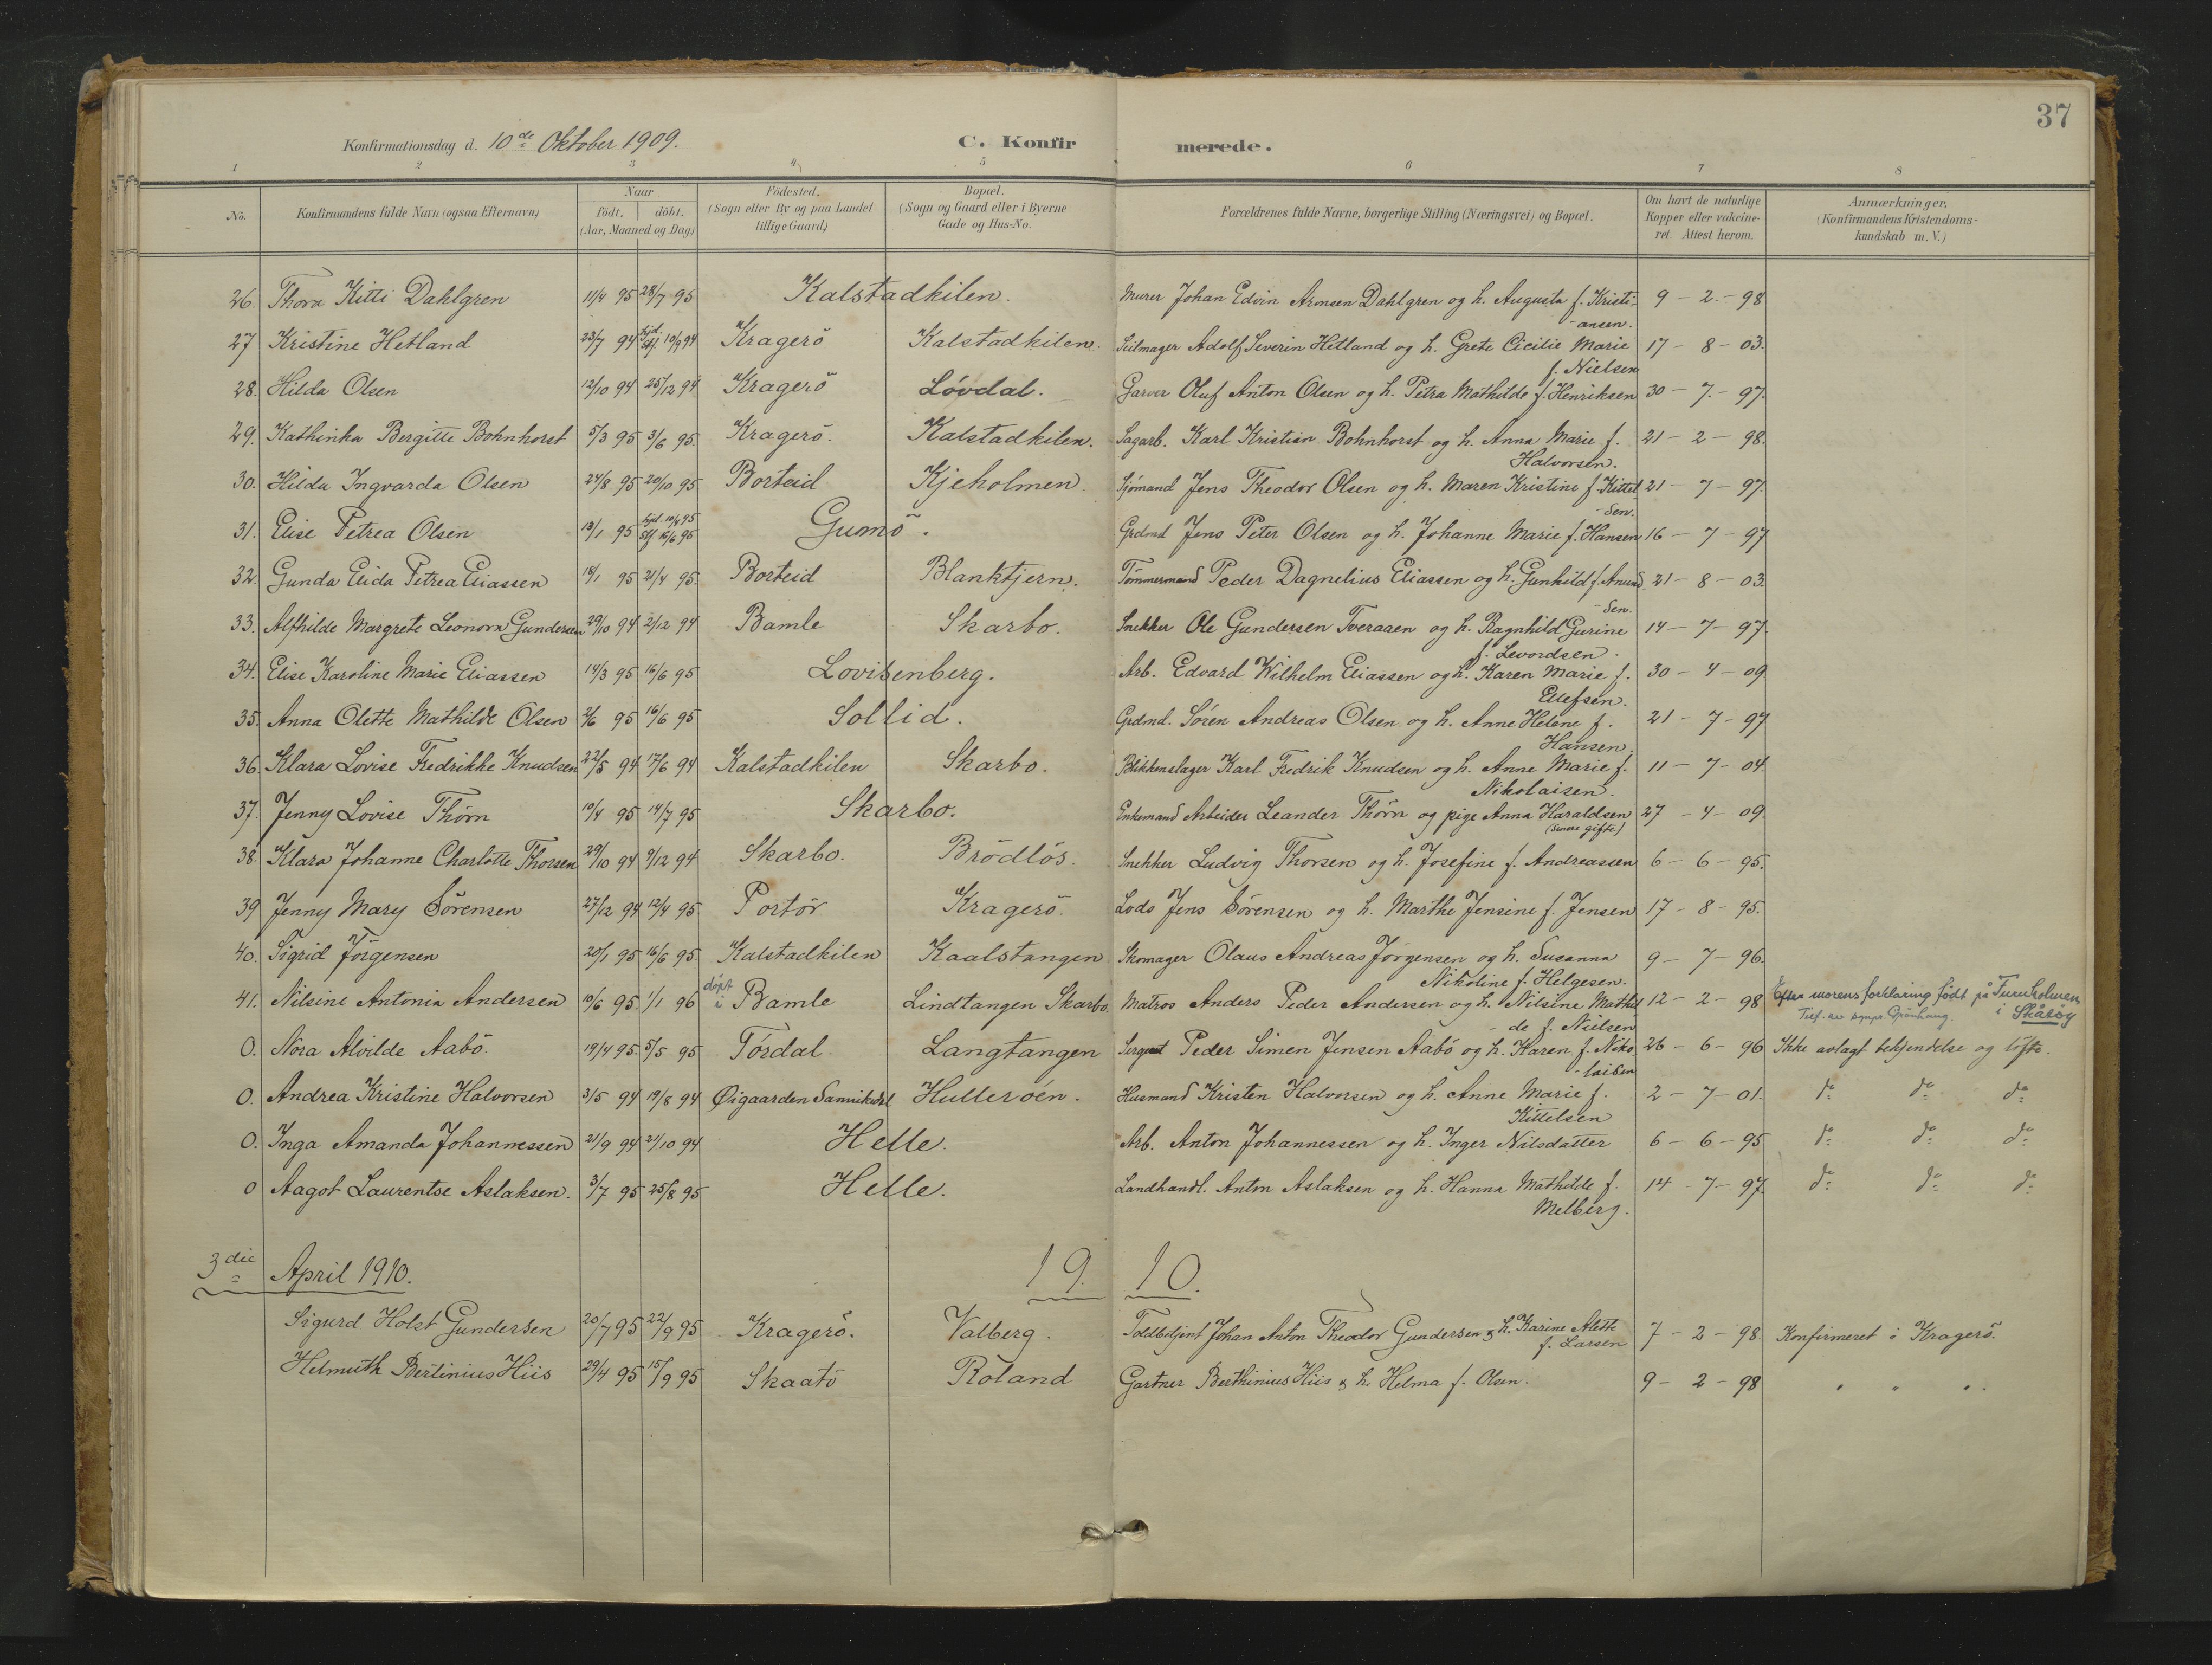 37
Konfirmationsdag d. 10de Oktober 1909. C. Konfir merede.
1 2 3 4 5 6 7 8
No. Konfirmandens fulde Navn (ogsaa Efternavn) Naar födt. döbt. (Aar, Maaned og Dag) Födested. (Sogn eller By og paa Landet tillige Gaard) Bopæl. (Sogn og Gaard eller i Byerne Gade og Hus-No. Forældrenes fulde Navne, borgerlige Stilling (Næringsvei) og Bopæl. Om havt de naturlige Kopper eller vakcineret. Attest herom. Anmærkninger. (Konfirmandens Kristendomskundskab m. V.)
26. Thora Kitti Dahlgren 11/4 95 28/7 95 Kalstadkilen. Murer Johan Edvin Aronsen Dahlgren og h. Augusta f. Kristi- 9 - 2. - 98
-ansen.
27 Kristine Hetland 23/7 94 hjd. 10/9 94 Kragerö Kalstadkilen. Seilmager Adolf Severin Hetland og h. Grete Cicilie Marie 17 - 8 - 03.
f. Nielsen
28. Hilda Olsen 12/10 94 25/12 94 Kragerö Lövdal. Garver Oluf Anton Olsen og h. Petra Mathilde f. Henriksen 30 - 7. - 97.
29. Kathinka Bergitte Bohnhorst 5/3 95 3/6 95. Kragerö. Kalstadkilen. Sagarb. Karl Kristian Bohnhorst og h. Anna Marie f. 21 - 2 - 98.
Halvorsen.
30. Hilda Ingvarda Olsen 24/8 95 20/10 95 Borteid Kjeholmen. Sjömand Jens Theodor Olsen og h. Maren Kristine f. Kittel 21 - 7 - 97.
-sen.
31. Elise Petrea Olsen 13/1 95 hjd. 10/4 95 stf. 16/6 95 Gumö. Grdmd Jens Peter Olsen og h. Johanne Marie f. Hansen 16 - 7 - 97
32. Gunda Elida Petrea Eliassen 18/1 95 21/4 95. Borteid Blanktjern. Tömmermand Peder Dagnelius Eliassen og h. Gunhild f. Anund 21 - 8 - 03.
-sen.
33. Alfhilde Margrete Leonora Gundersen 29/10 94 2/12 94 Bamle Skarbo. Snekker Ole Gundersen Tveraaen og h. Ragnhild Gurine 14 - 7 - 97.
f. Levordsen.
34. Elise Karoline Marie Eliassen 14/3 95 16/6 95 Lovisenberg. Arb. Edvard Wilhelm Eliassen og h. Karen Marie f. 30 - 4 - 09
Ellefsen.
35. Anna Olette Mathilde Olsen 2/6 95 16/6 95 Sollid. Grdmd. Sören Andreas Olsen og h. Anne Helene f. 21 - 7 - 97
Hansen.
36. Klara Lovise Fredrikke Knudsen 22/5 94 17/6 94 Kalstadkilen Skarbo. Blikkenslager Karl Fredrik Knudsen og h. Anne Marie f. 11 - 7 - 04.
Nikolaisen.
37. Jenny Lovise Thörn 10/4 95 14/7 95 Skarbo. Enkemand Arbeider Leander Thörn og pige Anna Haraldsen 27 - 4 - 09.
(Senere gifte)
38. Klara Johanne Charlotte Thorsen 29/10 94 9/12 94 Skarbo. Brödlös. Snekker Ludvig Thorsen og h. Josefine f. Andreassen 6 - 6 - 95.
39 Jenny Mary Sörensen 27/12 94 12/4 95 Portör Kragerö. Lods Jens Sörensen og h. Marthe Jensine f. Jensen 17 - 8 - 95.
40. Sigrid Jörgensen 20/1 95 16/6 95 Kalstadkilen Kaalstangen Skomager Olaus Andreas Jörgensen og h. Susanna 9 - 7 - 96.
Nikoline f. Helgesen.
41. Nilsine Antonia Andersen 10/6 95. 1/1 96 döpt i Bamle Lindtangen Skarbo. Matros Anders Peder Andersen og h. Nilsine Mathil 12 - 2 - 98 Efter morens forklaring födt på Furuholmen
-de f. Nielsen i Skåtöy
0. Nora Alvilde Aabö. 19/4 95. 5/5 95 Tördal Langtangen Sergeant Peder Simen Jensen Aabö og h. Karen f. Niko 26 - 6 - 96 Ikke avlagt bekjendelse og löfte.
-laisen
0. Andrea Kristine Halvorsen 3/5 94 19/8 94 Øigaarden Sannikedal Hulleröen. Husmand Kristen Halvorsen og h. Anne Marie f. 2 - 7 - 01. do do do
Kittelsen
0. Inga Amanda Johannessen 21/9 94 21/10 94 Helle. Arb. Anton Johannessen og h. Inger Nilsdatter 6 - 6 - 95 do do do
0 Aagot Laurentse Aslaksen. 3/7 95 25/8 95 Helle. Landhandl. Anton Aslaksen og h. Hanna Mathilde f. 14 - 7 - 97. do do do
Melberg.
3die April 1910. 19 10.
Sigurd Holst Gundersen 20/7 95 22/9 95 Kragerö. Valberg. Toldbetjent Johan Anton Theodor Gundersen & h. Karine Alette 7 - 2 - 98. Konfirmeret i Kragerö.
f. Larsen
Helmuth Bertinius Hiis 29/4 95 15/9 95 Skaatö Roland Gartner Berthinius Hiis & h. Helma f. Olsen. 9 - 2 - 98 " " "